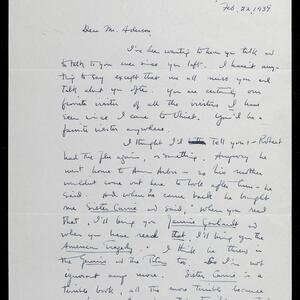 Feb. 22, 1939
Dear Mr. Anderson
I've been wanting to hear you talk and
to talk to you ever since you left. I haven't any-
thing to say except that we all miss you and
talk about you often. You are certainly our
favorite visitor of all the visitors I have
seen since I came to Olivet. You'd be a
favorite visitor anywhere.
I thought I'd tell you: - Robert
had the flu again, or something. Anyway he
went home to Ann Arbor - so his mother
wouldn't come out here to look after him - he
said. And when he came back he brought
me Sister Carrie and said, "When you read
that, I'll bring you Jennie Gerhardt and
when you have read that, I'll bring you the
American Tragedy." I think he threw in
the Genius and the Titan too. So I'm not
ignorant any more. Sister Carrie is a
terrible book, all the more terrible because